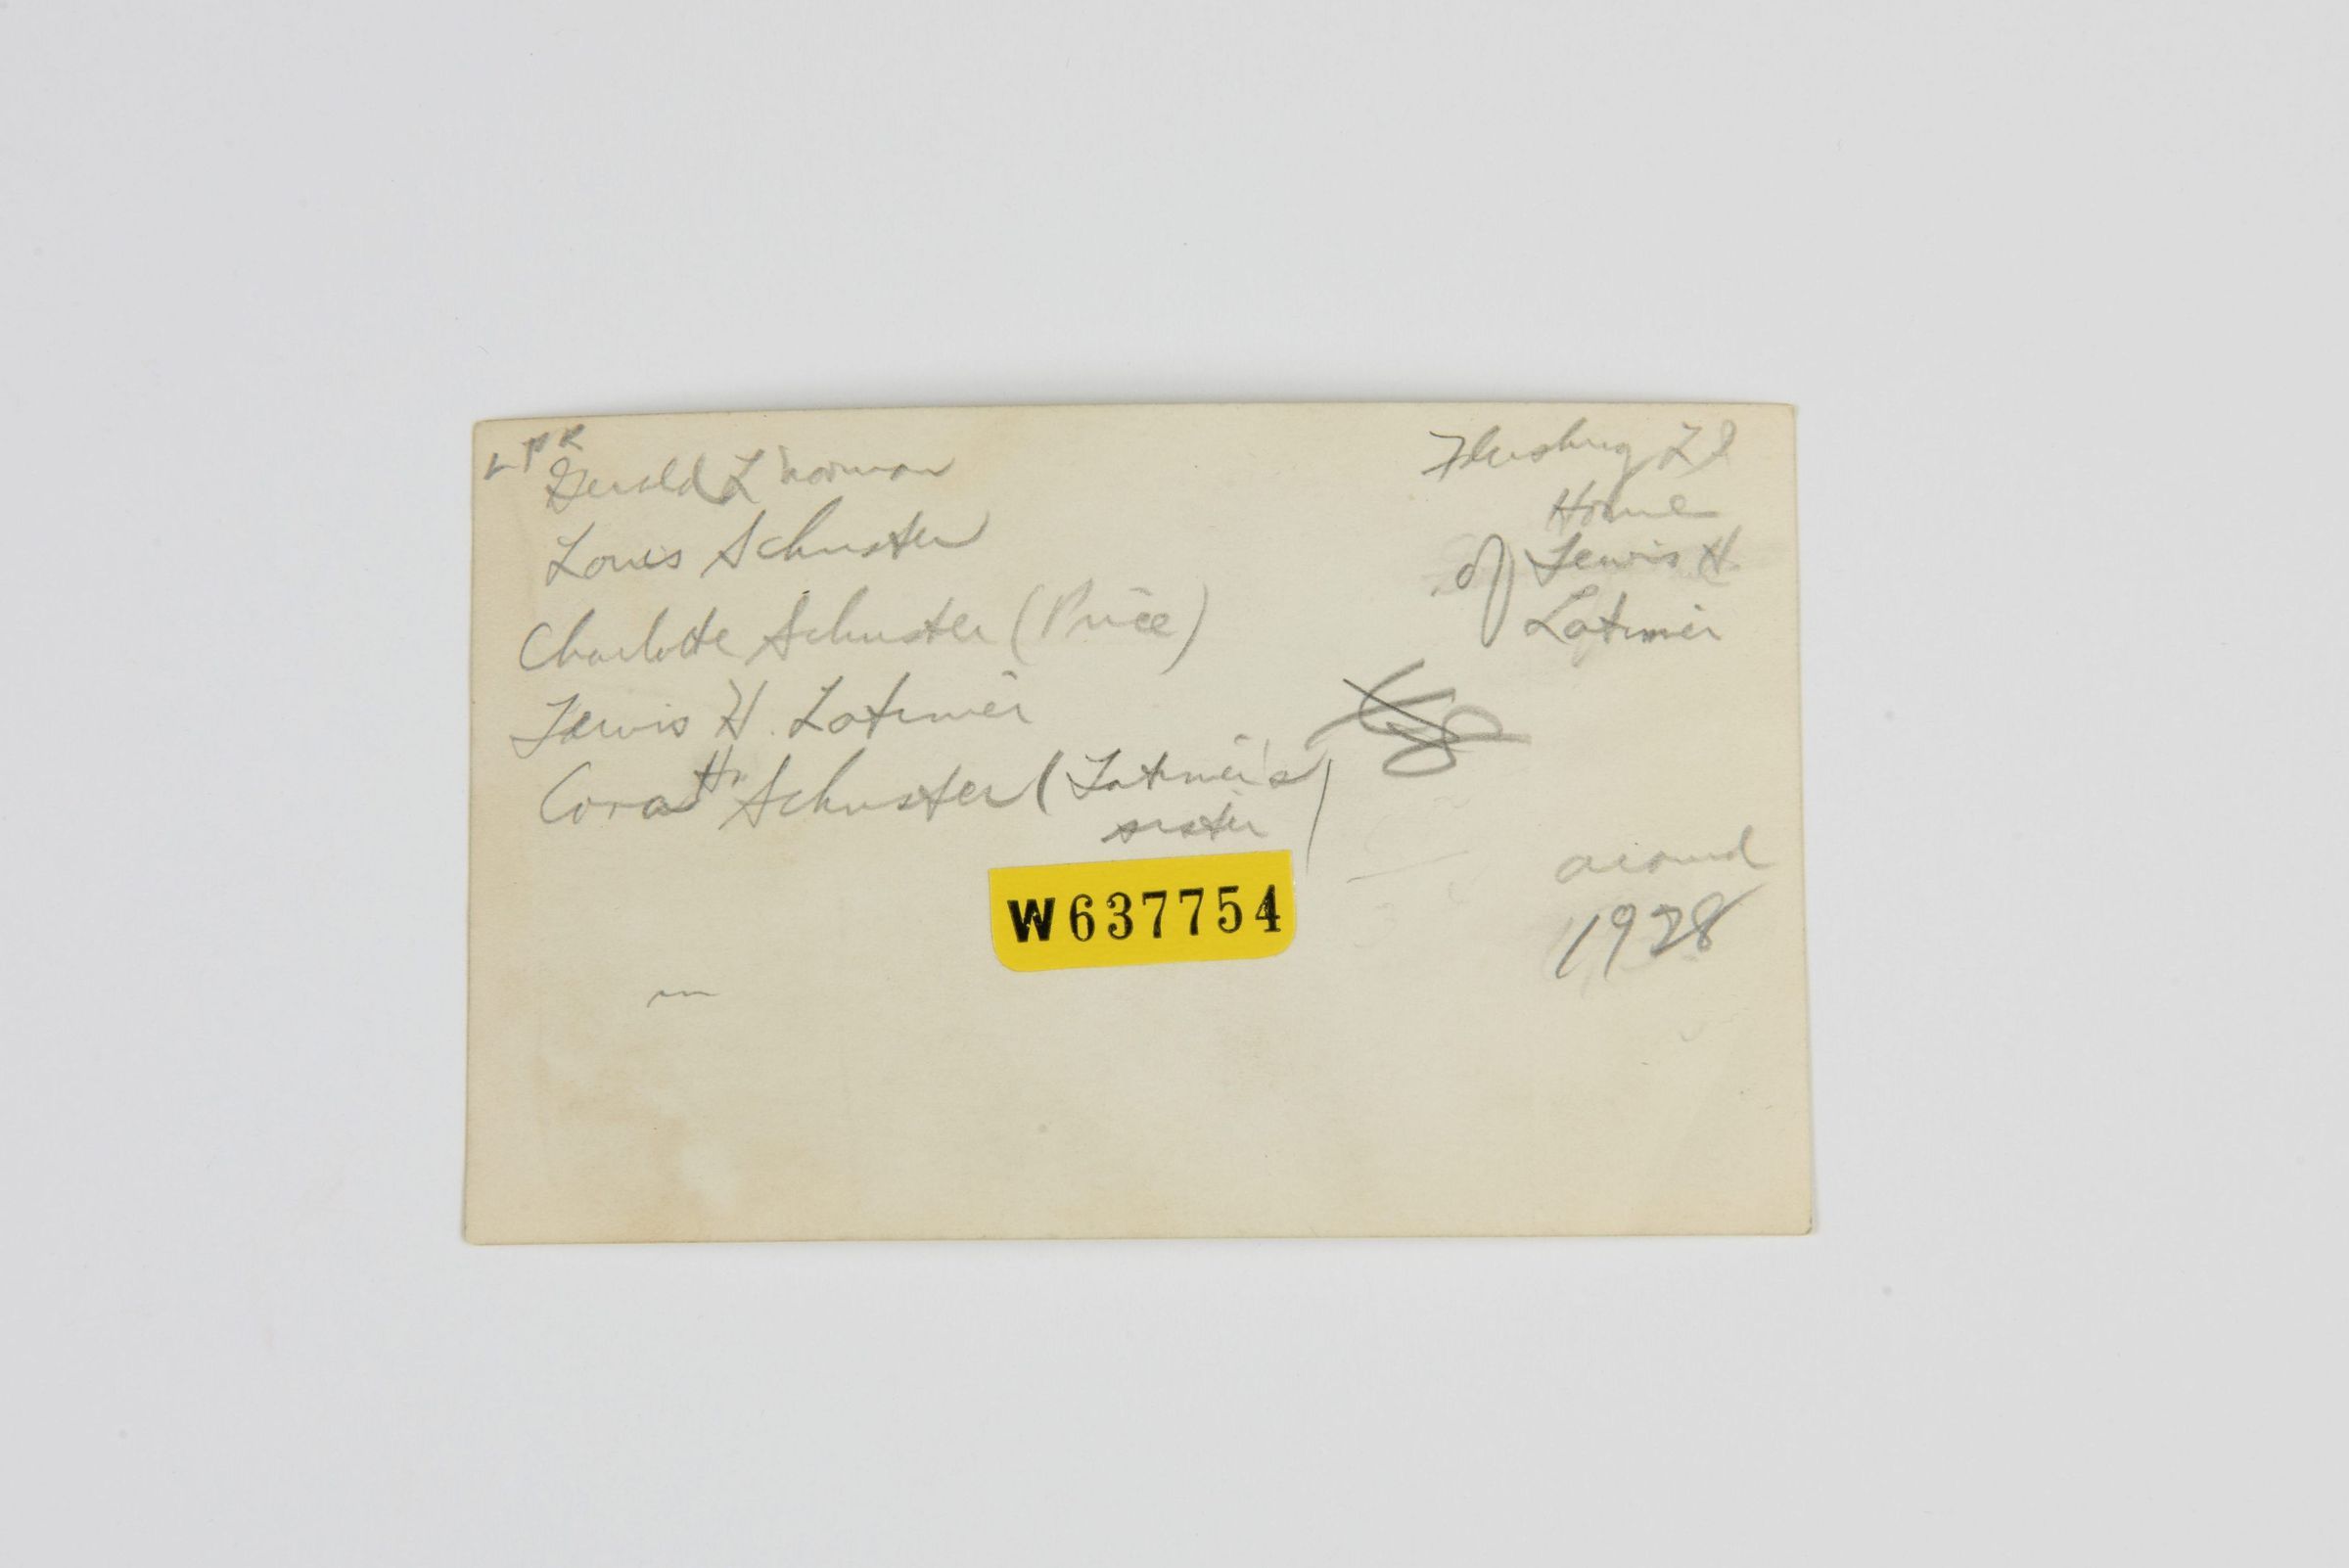 L P R
Gerald L Norman
Louis Schuster
Charlotte Schuster (Price)
Lewis H. Latimer
Cora H. Schuster (Latimer's
sister)
Flushing LI
Home
of Lewis H.
Latimer
around
1928
W637754